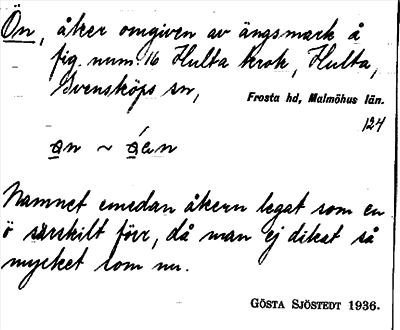 Ön, åker omgiven av ängsmark å
fig. num. 16 Hulta krok, Hulta,
Svensköps sn,
Frosta hd, Malmöhus län.
124
an ~ áen
Namnet emedan åkern legat som en
ö särskilt förr, då man ej dikat så
mycket som nu.
GÖSTA SJÖSTEDT 1936.